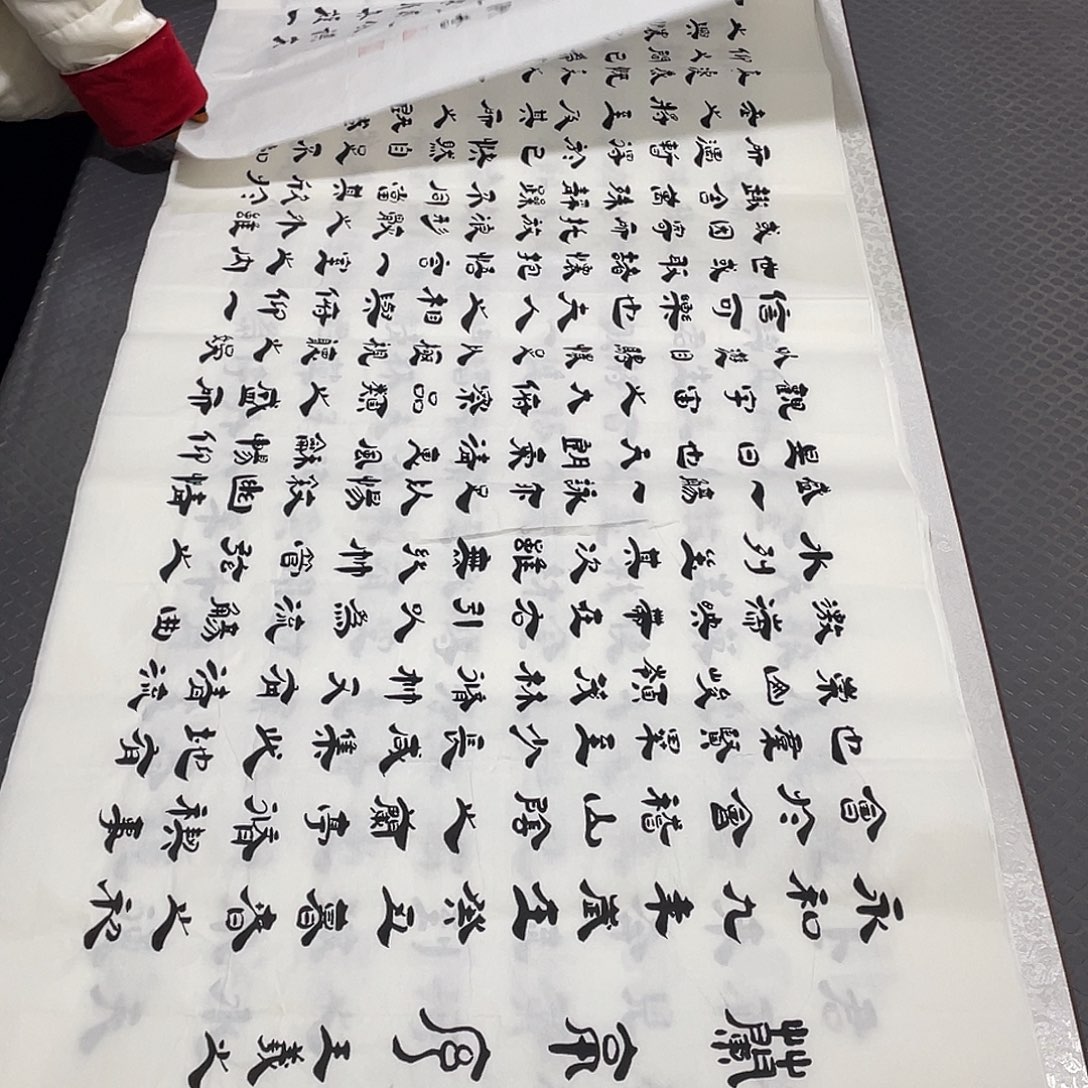 蘭亭序王羲之
永和九年歲在癸丑暮春之初
會於會稽山陰之蘭亭脩禊事
也群賢畢至少長咸集此地有
崇山峻領茂林脩竹又有清流
激湍映帶左右引以為流觴曲
水列坐其次雖無絲竹管弦之
盛一觴一詠亦足以暢敘幽情
是日也天朗氣清惠風和暢仰
觀宇宙之大俯察品類之盛所
以遊目騁懷足以極視聽之娛
信可樂也夫人之相與俯仰一
世或取諸懷抱悟言一室之內
或因寄所託放浪形骸之外雖
趣舍萬殊靜躁不同當其欣於
所遇暫得於己快然自足不知
老之將至及其所之既